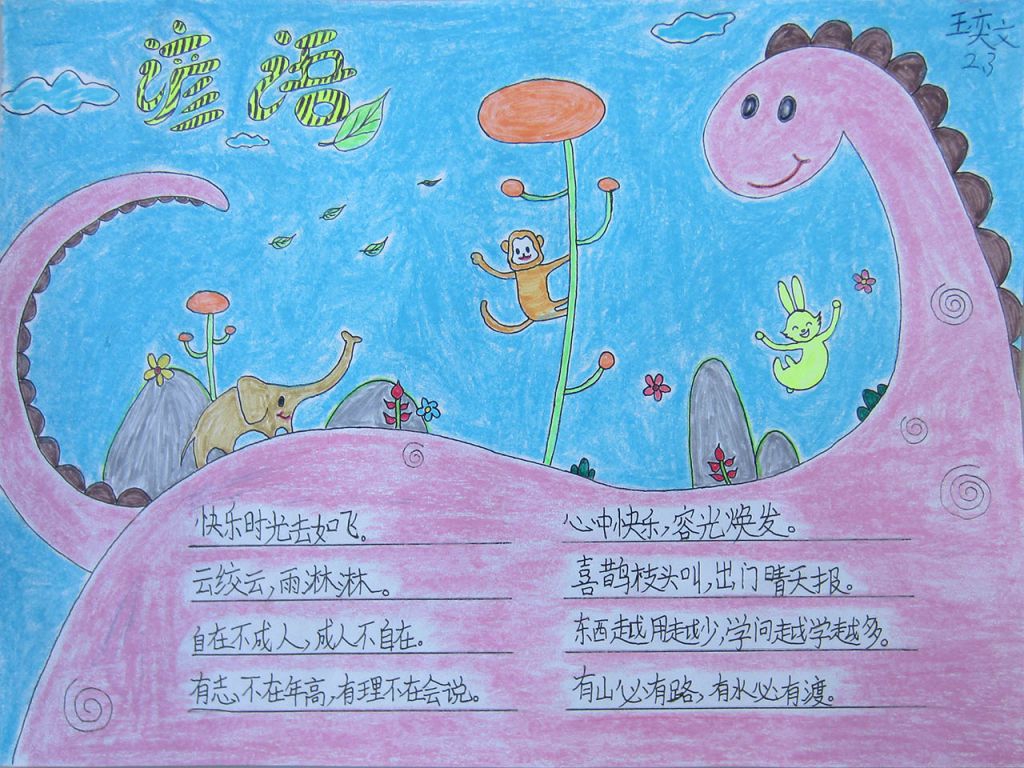 谚语
王奕文
2.3
快乐时光去如飞。
云绞云，雨淋淋。
自在不成人，成人不自在。
有志不在年高，有理不在会说。
心中快乐，容光焕发。
喜鹊枝头叫，出门晴天报。
东西越用越少，学问越学越多。
有山必有路，有水必有渡。